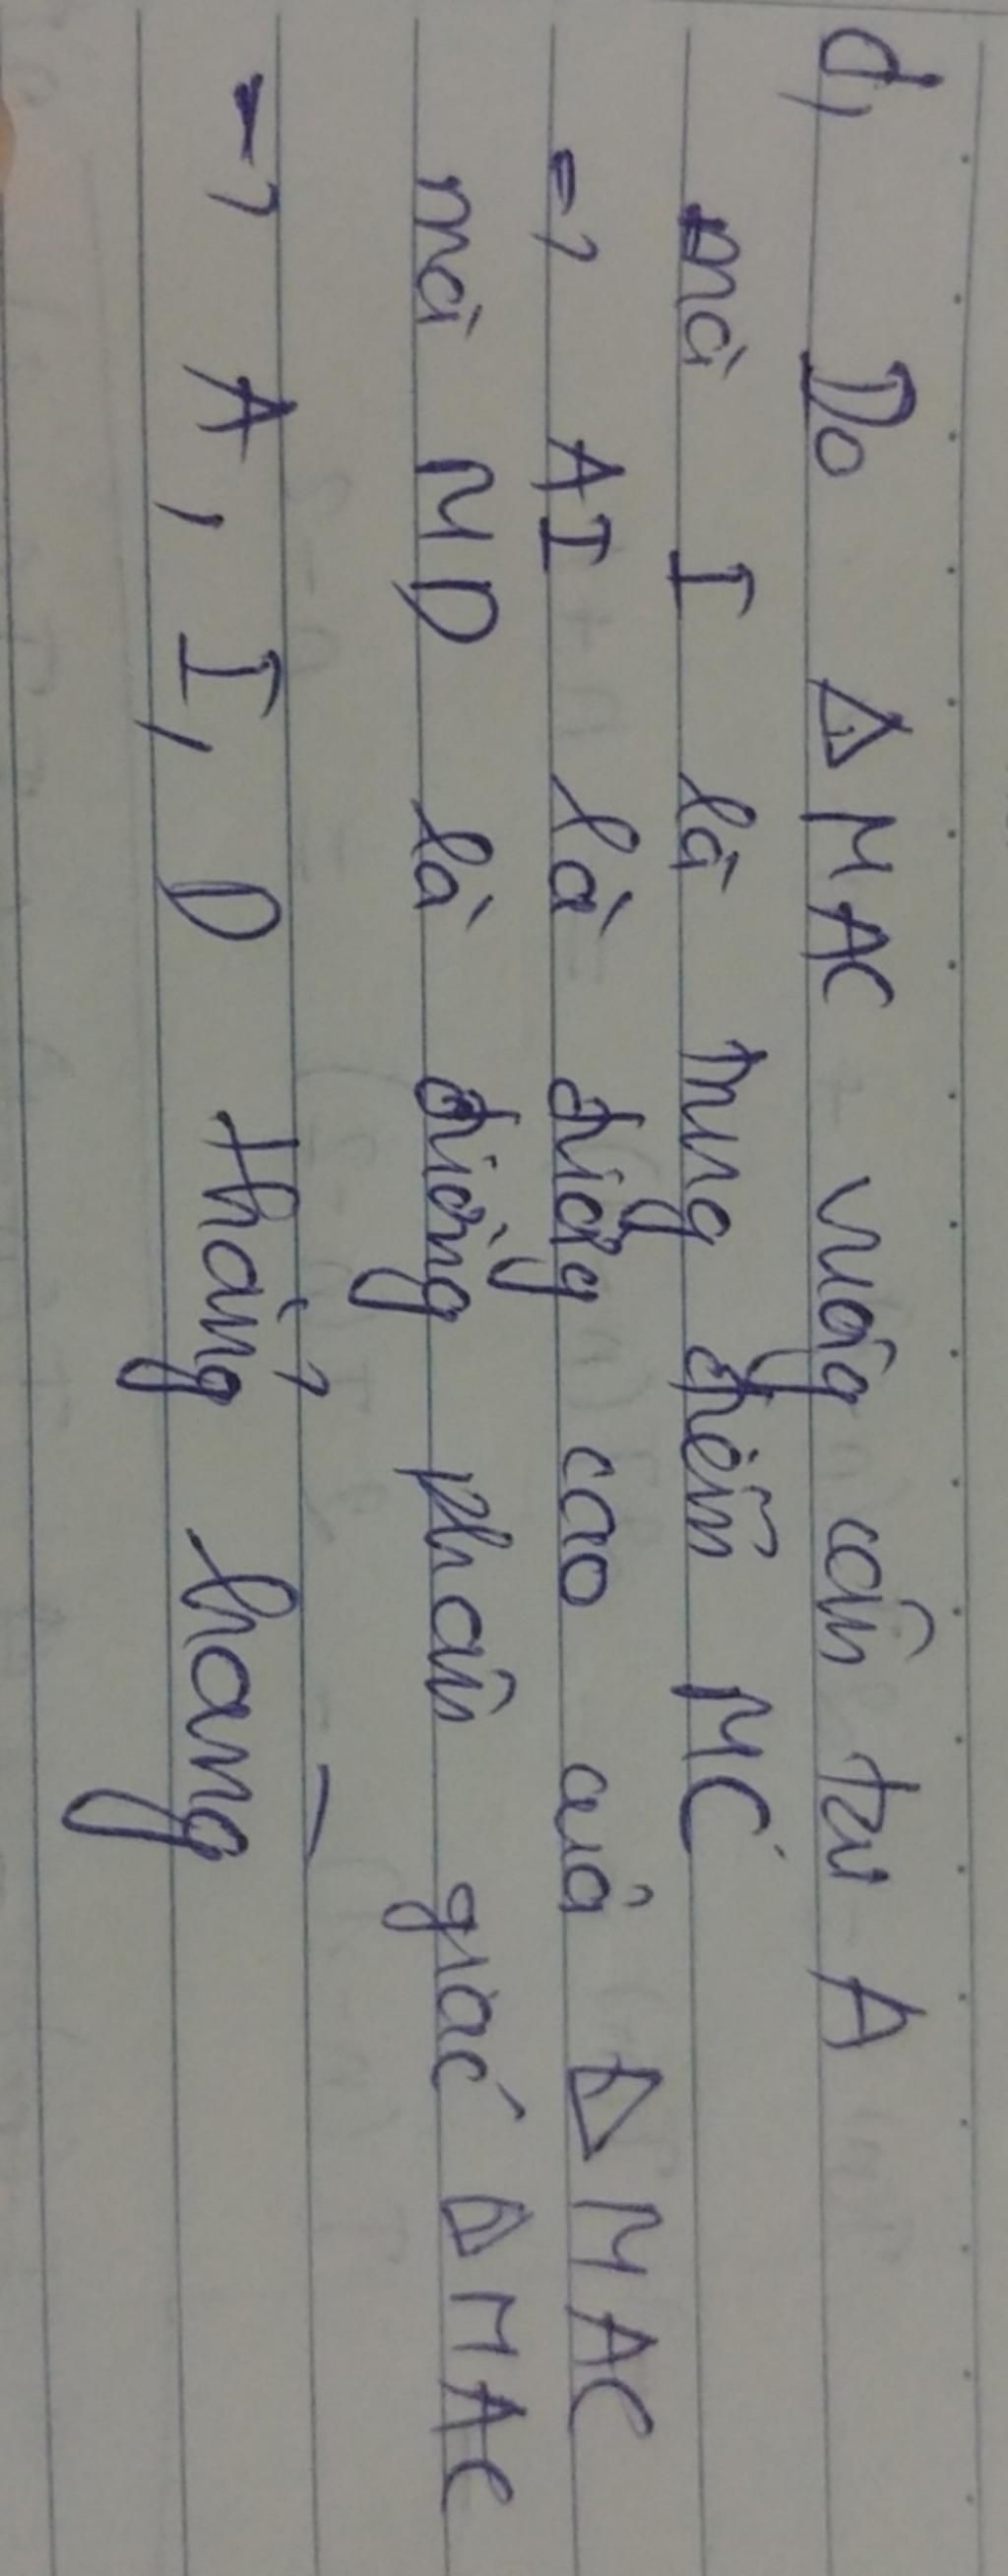 d, Do Δ MAC vuông cân tại A
mà I là trung điểm MC
=> AI là đường cao của Δ MAC
mà MD là đường phân giác Δ MAC
=> A, I, D thẳng hàng